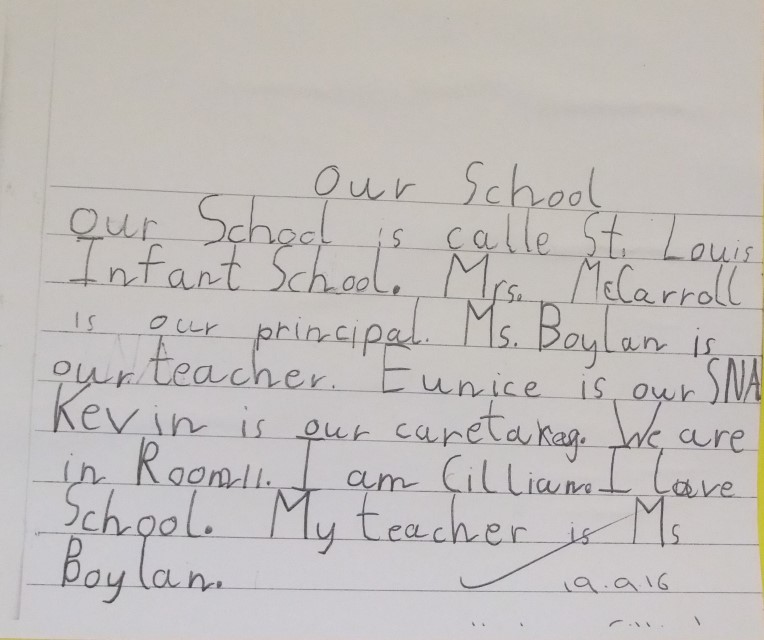 Our School
Our School is calle St. Louis
Infant School. Mrs. McCarroll
is our principal. Ms. Boylan is
our teacher. Eunice is our SNA
Kevin is our caretakeg. We are
in Room 11. I am Cillian. I love
School. My teacher is Ms
Boylan.
19.9.16